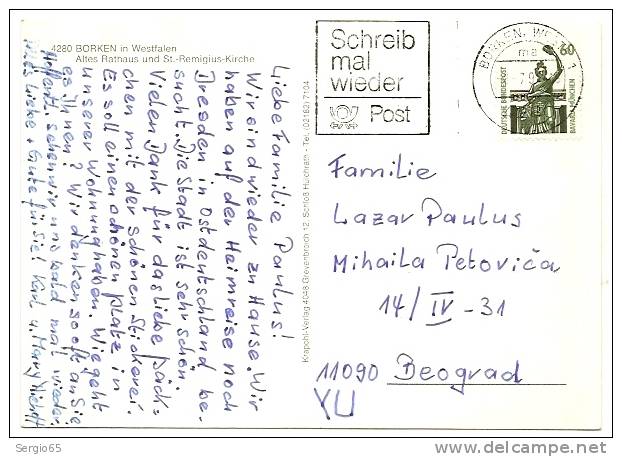 4280 BORKEN in Westfalen
Altes Rathaus und St.-Remigius-Kirche
Liebe Familie Paulus!
Wir sind wieder zu Hause. Wir
haben auf der Heimreise noch
Dresden in Ostdeutschland be-
sucht. Die Stadt ist sehr schön.
Vielen Dank für das liebe Päck-
chen mit der schönen Stickerei.
Es soll einen schönen Platz in
unserer Wohnung haben. Wie geht
es Ihnen? Wir denken so oft an Sie
Hoffentl. sehen wir uns bald mal wieder.
Alles Liebe + Gute für Sie! Karl u. Mary
Krapohl-Verlag 4048 Grevenbroich 12, Schloß Hülchrath - Tel. (02182) 7104
Schreib
mal
wieder
Post
BORKEN, WESTF 1
60
DEUTSCHE BUNDESPOST
BAVARIA MÜNCHEN
Familie
Lazar Paulus
Mihaila Petoviča
14/IV-31
11090 Beograd
YU
Sergio65
www.delcampe.net